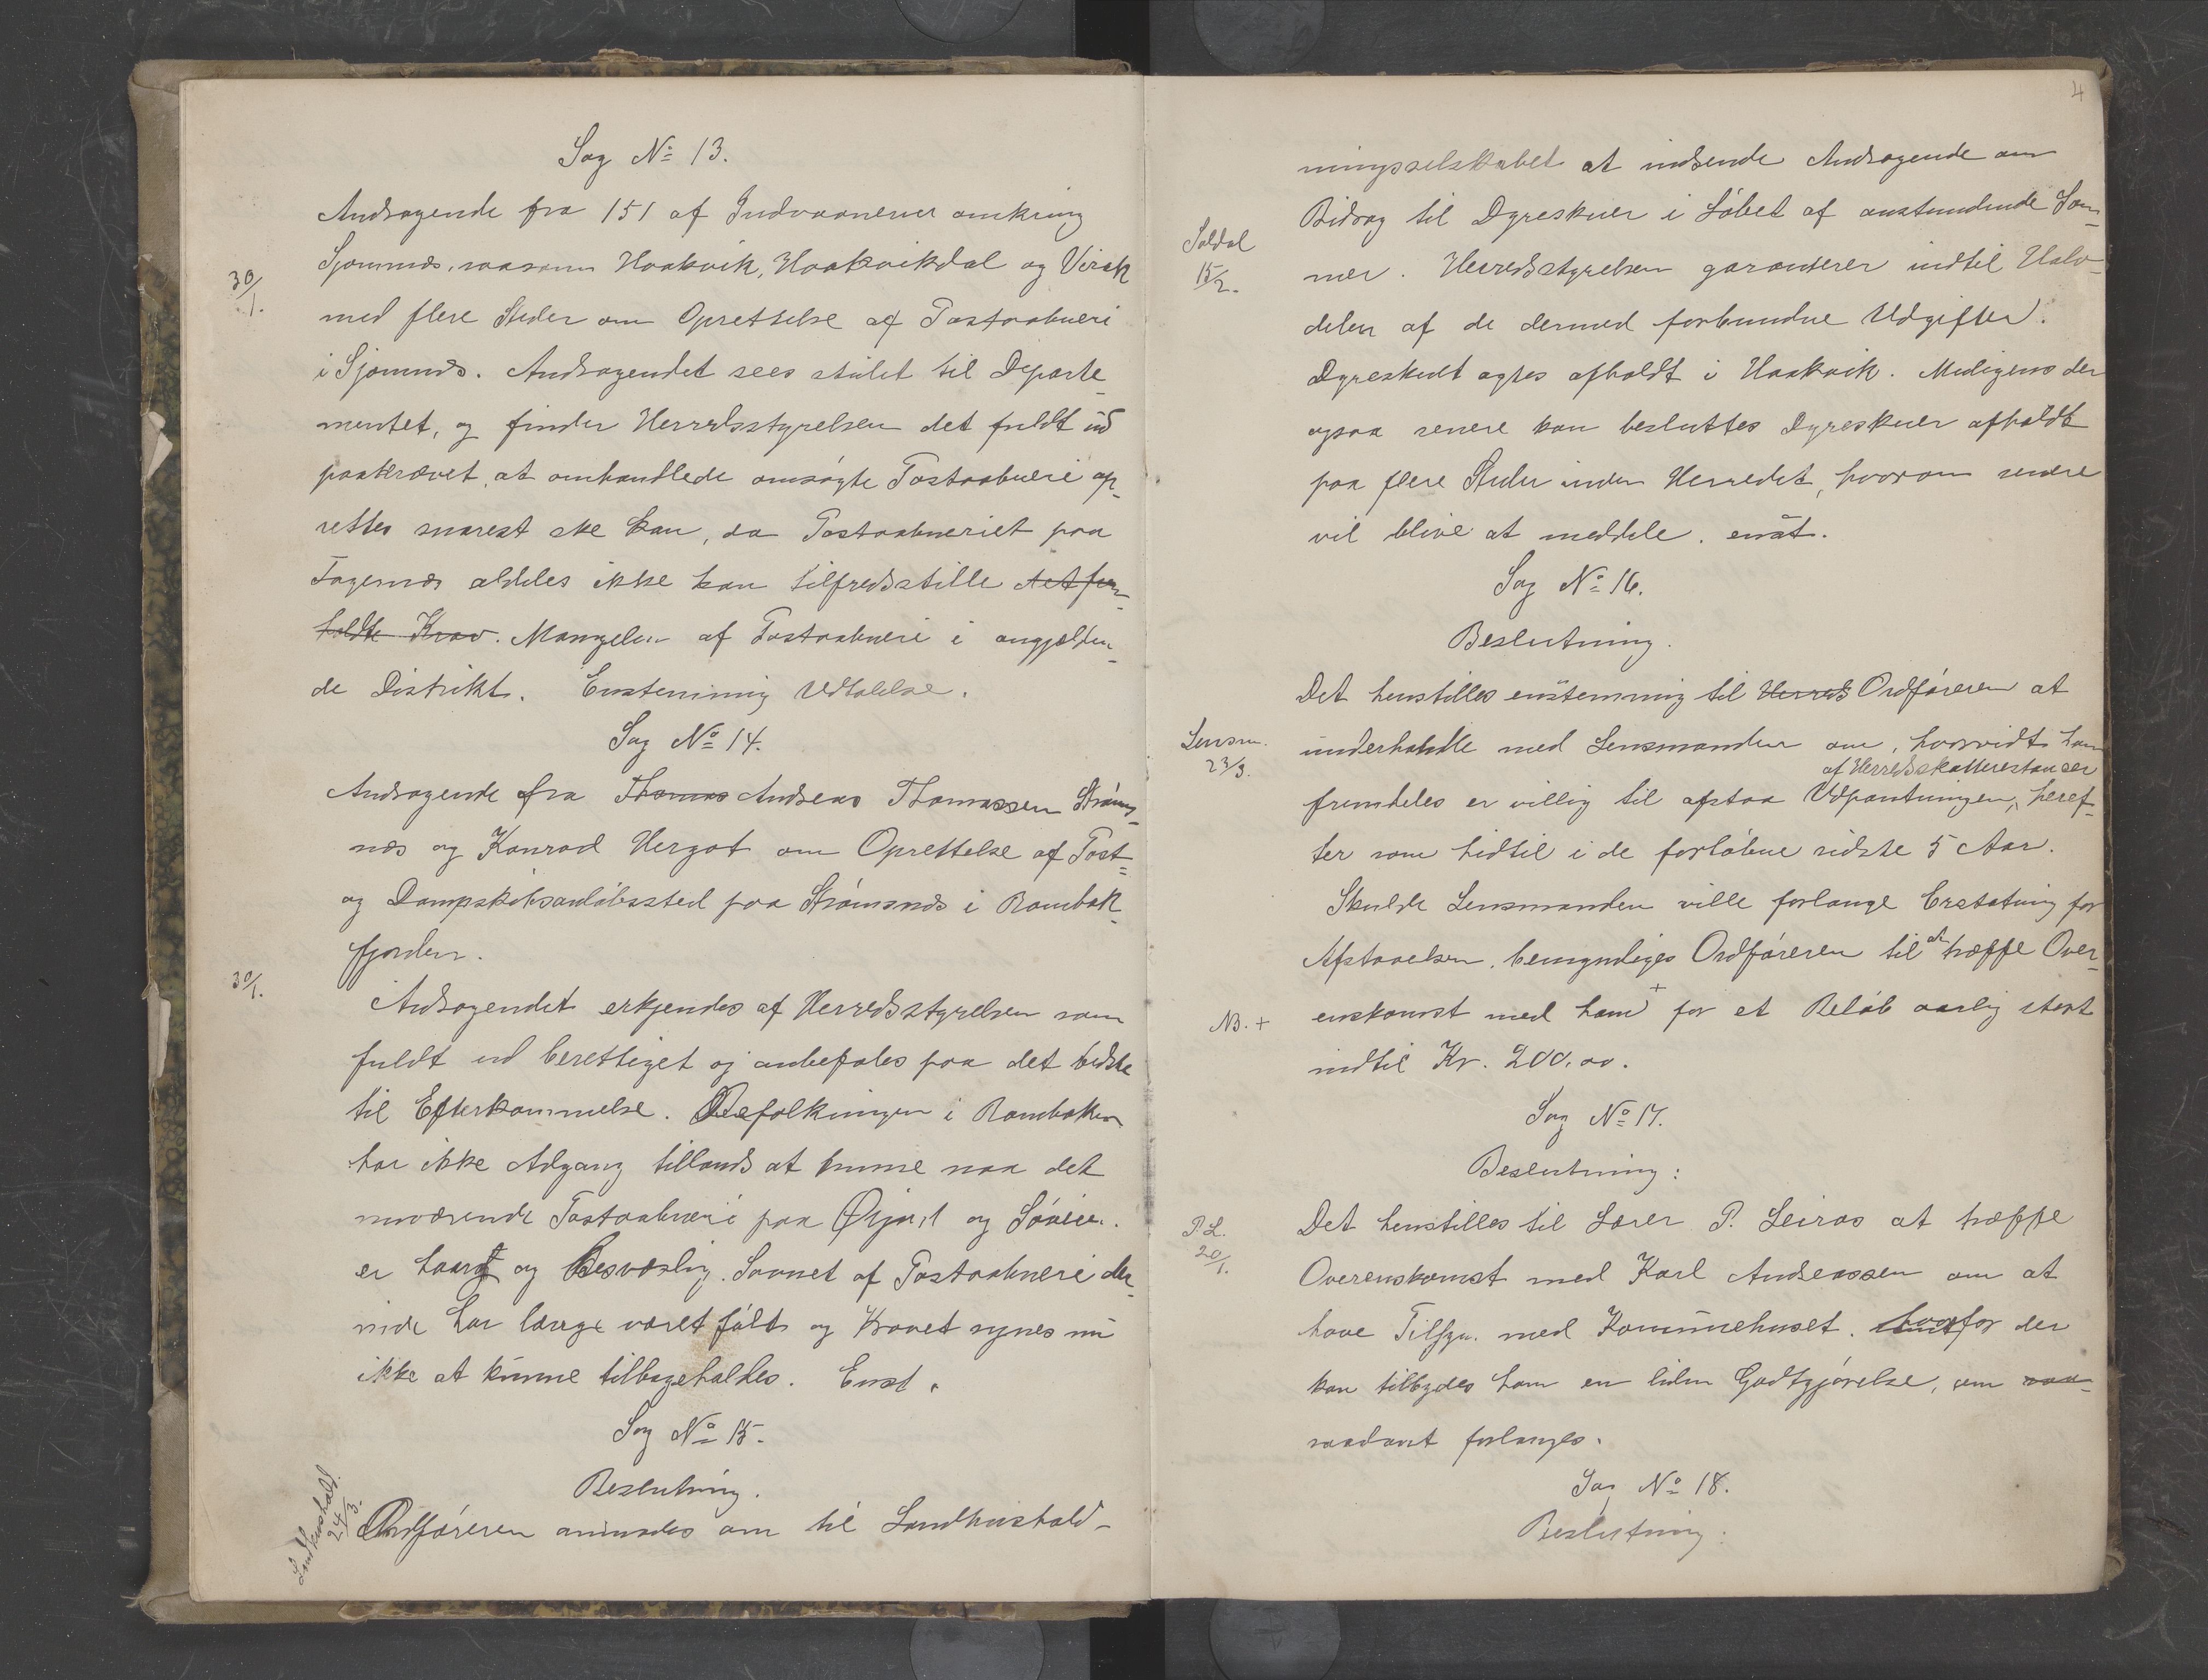 Sag No 13.
Andragende fra 151 af Indvaanerner omkring
30/1.
Sjomnæs, saasom Haakvik, Haakvikdal og Virak
med flere Steder om Oprettelse af Postaabneri
i Sjomnæs. Andragendet sees stilet til Departe-
mentet, og finder Herredsstyrelsen det fuldt ud
paakrævet, at omhandlede omsøgte Postaabneri op-
rettes snarest ske kan, da Postaabneriet paa
Fagernæs aldeles ikke kan tilfredsstille
Krav. Mangelen af Postaabneri i angjælden-
de Distrikt. Enstemmig Udtalelse.
Sag No 14.
Andragende fra Thomas Andreas Thomassen Strøms-
næs og Konrad Hergot om Oprettelse af Post-
og Dampskibsanløbssted paa Strømsnæs i Rombak
fjorden.
30/1.
Andragendet erkjendes af Herredsstyrelsen som
fuldt ud berettiget og anbefales paa det bedste
til Efterkommelse. Befolkningen i Rombaken
har ikke Adgang tillands at kunne naa det
nuværende Postaabneri paa Øijord og Søveien
er haard og Besværlig. Savnet af Postaabneri der-
inde har længe været følt og Kravet synes nu
ikke at kunne tilbageholdes. Enst.
Sag No 15.
Beslutning.
Landhushold. 24/3.
Ordføreren anmodes om til Landhushold-
4
ningsselskabet at indsende Andragende om
Bidrag til Dyreskuer i Løbet af anstundende Som-
Soldal
15/2.
mer. Herredsstyrelsen garanterer indtil Halv-
delen af de dermed forbundne Udgifter.
Dyreskuet agtes afholdt i Haakvik. Muligens der
ogsaa senere kan besluttes Dyreskuer afholdt
paa flere Steder inden Herredet, hvorom senere
vil blive at meddele. enst.
Sag No 16.
Beslutning.
Det henstilles enstemmig til Herreds Ordføreren at
Lensm.
23/3.
underhandle med Lensmanden om, hvorvidt han
af Herredsskatterestancer
fremdeles er villig til afstaa Udpantningen, heref-
ter som hidtil i de forløbne sidste 5 Aar.
Skulde Lensmanden ville forlange Erstatning for
Afstaaelsen, bemyndiges Ordføreren til at træffe Over-
NB. +
enskomst med ham + for et Beløb aarlig stort
indtil Kr. 200.00.
Sag No 17.
Beslutning:
P.L.
20/1.
Det henstilles til Lærer P. Leiros at træffe
Overenskomst med Karl Andreassen om at
have Tilsyn med Kommunehuset. hvorfor der
kan tilbydes ham en liden Godtgjørelse, om saa-
saadant forlanges.
Sag No 18.
Beslutning: